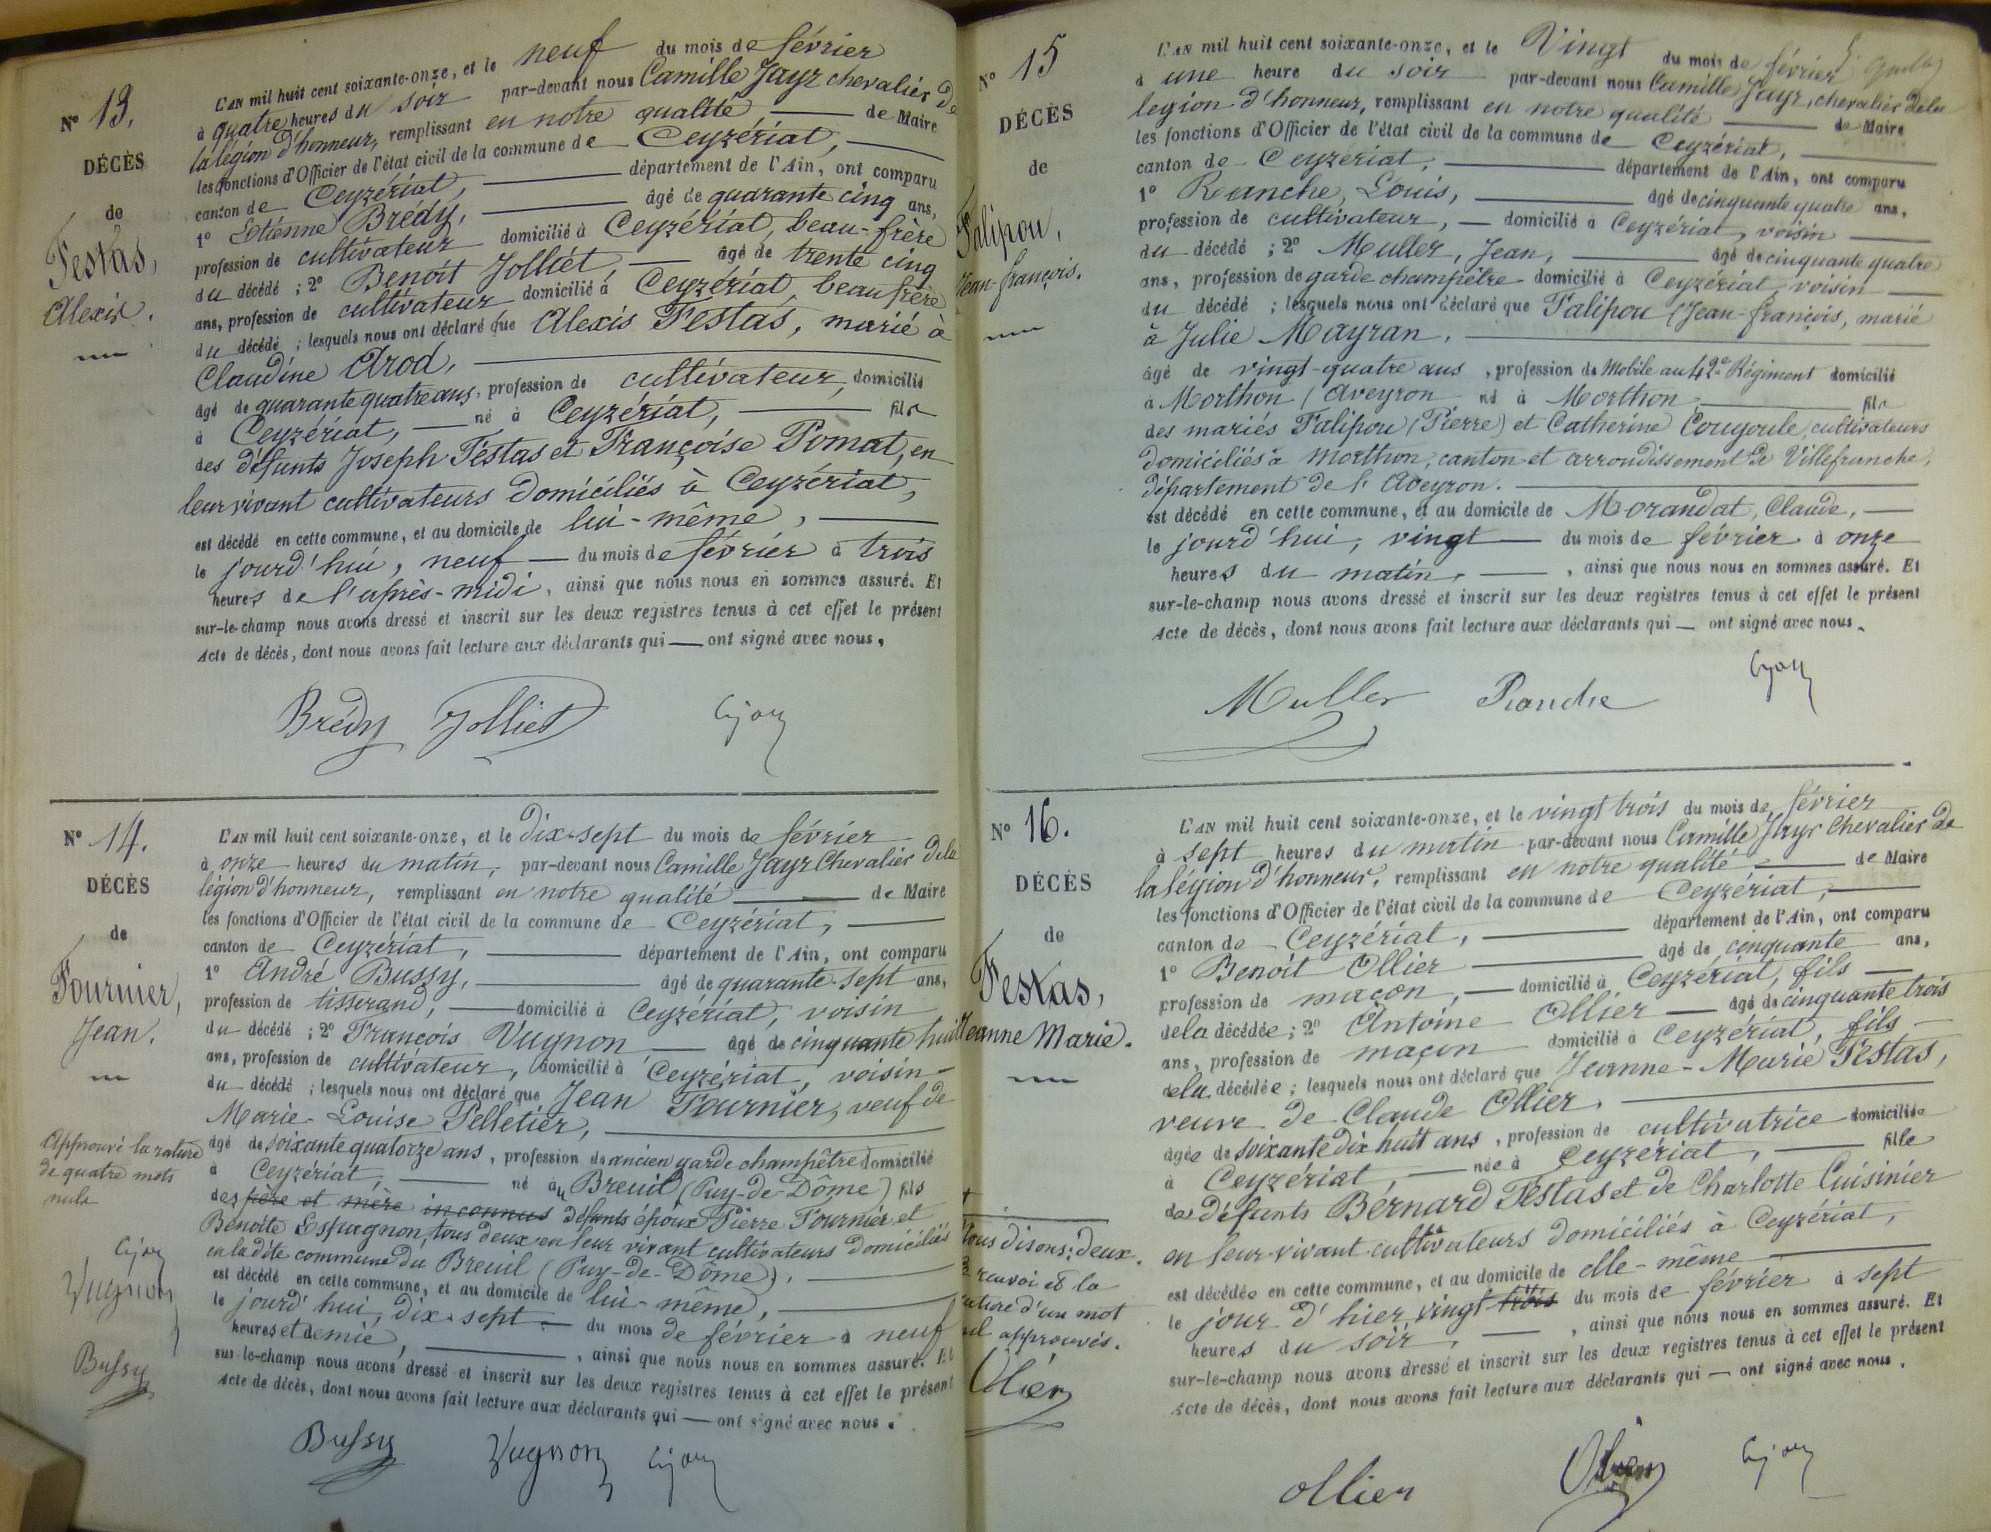 N° 13.
DÉCÈS
de
Festas,
Alexis.
L'AN mil huit cent soixante-onze, et le neuf du mois de février
à quatre heures du soir par-devant nous Camille Jayr chevalier de
la légion d'honneur, remplissant en notre qualité de Maire
les fonctions d'Officier de l'état civil de la commune de Ceyzériat,
canton de Ceyzériat, département de l'Ain, ont comparu
1° Etienne Brédy, âgé de quarante cinq ans,
profession de cultivateur domicilié à Ceyzériat, beau-frère
du décédé ; 2° Benoit Jolliet âgé de trente cinq
ans, profession de cultivateur domicilié à Ceyzériat, beau frère
du décédé ; lesquels nous ont déclaré que Alexis Festas, marié à
Claudine Arod,
âgé de quarante quatre ans, profession de cultivateur, domicilié
à Ceyzériat, né à Ceyzériat, fils
des défunts Joseph Festas et Françoise Pomat, en
leur vivant cultivateurs domiciliés à Ceyzériat,
est décédé en cette commune, et au domicile de lui-même,
le jourd'hui, neuf du mois de février à trois
heures de l'après-midi, ainsi que nous nous en sommes assuré. Et
sur-le-champ nous avons dressé et inscrit sur les deux registres tenus à cet effet le présent
Acte de décès, dont nous avons fait lecture aux déclarants qui ont signé avec nous.
Brédy Jolliet
N° 14.
DÉCÈS
de
Fournier,
Jean.
Approuvé la rature
de quatre mots
nuls
Vugnon
Bussy
L'AN mil huit cent soixante-onze, et le dix-sept du mois de février
à onze heures du matin, par-devant nous Camille Jayr Chevalier de la
légion d'honneur, remplissant en notre qualité de Maire
les fonctions d'Officier de l'état civil de la commune de Ceyzériat,
canton de Ceyzériat, département de l'Ain, ont comparu
1° André Bussy, âgé de quarante-sept ans,
profession de tisserand, domicilié à Ceyzériat, voisin
du décédé ; 2° François Vugnon âgé de cinquante huit
ans, profession de cultivateur, domicilié à Ceyzériat, voisin
du décédé ; lesquels nous ont déclaré que Jean Fournier, veuf de
Marie-Louise Pelletier,
âgé de soixante quatorze ans, profession de ancien garde champêtre domicilié
à Ceyzériat, né au Breuil (Puy-de-Dôme) fils
des père et mère inconnus défunts époux Pierre Fournier et
Benoite Espagnon, tous deux en leur vivant cultivateurs domiciliés
en la dite commune du Breuil (Puy-de-Dôme),
est décédé en cette commune, et au domicile de lui-même,
le jourd'hui, dix-sept du mois de février à neuf
heures et demie, ainsi que nous nous en sommes assuré. Et
sur-le-champ nous avons dressé et inscrit sur les deux registres tenus à cet effet le présent
Acte de décès, dont nous avons fait lecture aux déclarants qui ont signé avec nous.
Bussy Vugnon
N° 15
DÉCÈS
de
Falipou,
Jean-françois.
L'AN mil huit cent soixante-onze, et le Vingt du mois de février
à une heure du soir par-devant nous Camille Jayr, chevalier de la
légion d'honneur, remplissant en notre qualité de Maire
les fonctions d'Officier de l'état civil de la commune de Ceyzériat,
canton de Ceyzériat, département de l'Ain, ont comparu
1° Ranche, Louis, âgé de cinquante quatre ans,
profession de cultivateur, domicilié à Ceyzériat, voisin
du décédé ; 2° Muller, Jean, âgé de cinquante quatre
ans, profession de garde champêtre domicilié à Ceyzériat, voisin
du décédé ; lesquels nous ont déclaré que Falipou (Jean-françois, marié
à Julie Mayran,
âgé de vingt-quatre ans, profession de Mobile au 42e Régiment domicilié
à Morthon (Aveyron né à Morthon fils
des mariés Falipou (Pierre) et Catherine Cougoule, cultivateurs
domiciliés à Morthon, canton et arrondissement de Villefranche,
département de l'Aveyron.
est décédé en cette commune, et au domicile de Morandat, Claude,
le jourd'hui, vingt du mois de février à onze
heures du matin, ainsi que nous nous en sommes assuré. Et
sur-le-champ nous avons dressé et inscrit sur les deux registres tenus à cet effet le présent
Acte de décès, dont nous avons fait lecture aux déclarants qui ont signé avec nous.
Muller Ranche
N° 16.
DÉCÈS
de
Festas,
Jeanne Marie.
Nous disons: deux
renvoi et la
rature d'un mot
nul approuvés.
L'AN mil huit cent soixante-onze, et le vingt trois du mois de février
à sept heures du matin par-devant nous Camille Jayr Chevalier de
la légion d'honneur, remplissant en notre qualité de Maire
les fonctions d'Officier de l'état civil de la commune de Ceyzériat,
canton de Ceyzériat, département de l'Ain, ont comparu
1° Benoit Ollier âgé de cinquante ans,
profession de maçon, domicilié à Ceyzériat, fils
de la décédée ; 2° Antoine Ollier âgé de cinquante trois
ans, profession de maçon domicilié à Ceyzériat, fils
de la décédée ; lesquels nous ont déclaré que Jeanne-Marie Festas,
veuve de Claude Ollier,
âgée de soixante dix huit ans, profession de cultivatrice domiciliée
à Ceyzériat, née à Ceyzériat, fille
des défunts Bernard Festas et de Charlotte Cuisinier
en leur vivant cultivateurs domiciliés à Ceyzériat,
est décédée en cette commune, et au domicile de elle-même
le jour d'hier vingt trois du mois de février à sept
heures du soir, ainsi que nous nous en sommes assuré. Et
sur-le-champ nous avons dressé et inscrit sur les deux registres tenus à cet effet le présent
Acte de décès, dont nous avons fait lecture aux déclarants qui ont signé avec nous.
ollier